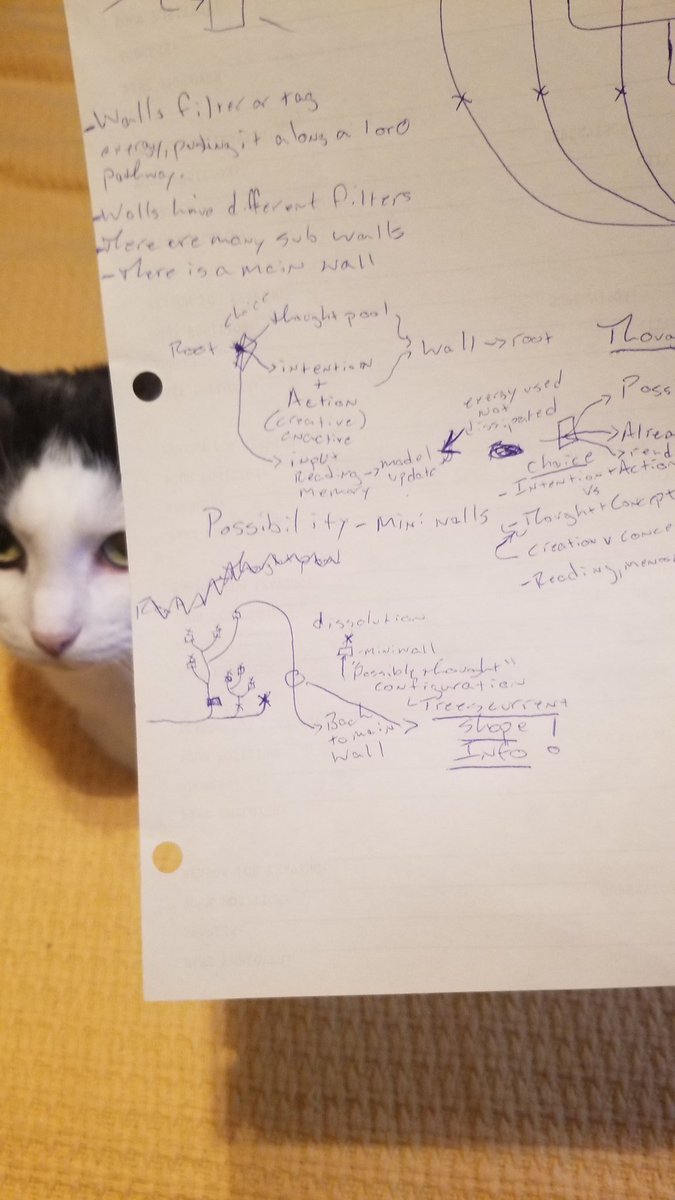 -Walls filter or tag
energy, putting it along a 1 or 0
pathway.
-Walls have different filters
-There are many sub walls
-There is a main wall
choice
Root
thought pool
Wall → root
intention
+
Action
(creative)
enactive
input
Reading → model
Memory update
energy used
not
dissipated
Thoug
Poss
Alrea
rend
choice
-Intention + Action
vs
-Thought + Concept
Creation v conce
-Reading, memo
Possibility - Mini walls
dissolution
-miniwall
"Possible thought"
configuration
Trees current
Shape !
Info
Back
to main
wall